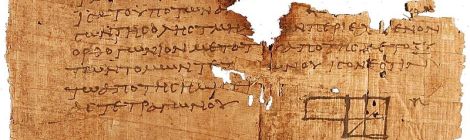 ΙϹΑΤΟΥΠΟΤΩΝ
ϹΩΝΤΗϹΟΛΗϹΤΜ ΝΠΕΡΙΕΧΟΜΕΝΟΝ
ΟΡΘΟΓΩΝΙΟΝΜΕΤΑΤΟΥ ΑΠΟΤΗϹΜΕΤΟΞΥ
ΤΩΝΤΟΜΩΝΤΕΤ ΥΙϹΟΝΕϹΤΙΝ
ΤΩΑΠΟΤΗϹΗΜΙϹ
ΑϹΤΕΤΡΑΓΩΝΟΥ